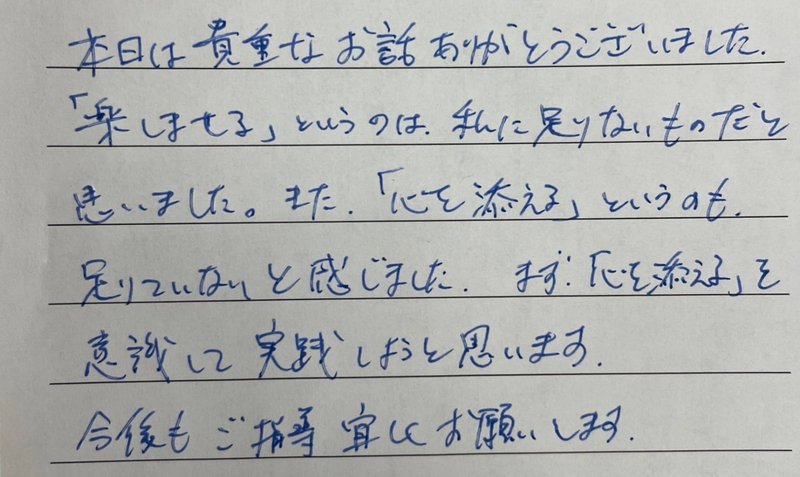 本日は貴重なお話ありがとうございました.
「楽しませる」というのは、私に足りないものだと
思いました。また、「心を添える」というのも、
足りていないと感じました. まず、「心を添える」を
意識して実践しようと思います.
今後もご指導宜しくお願いします.